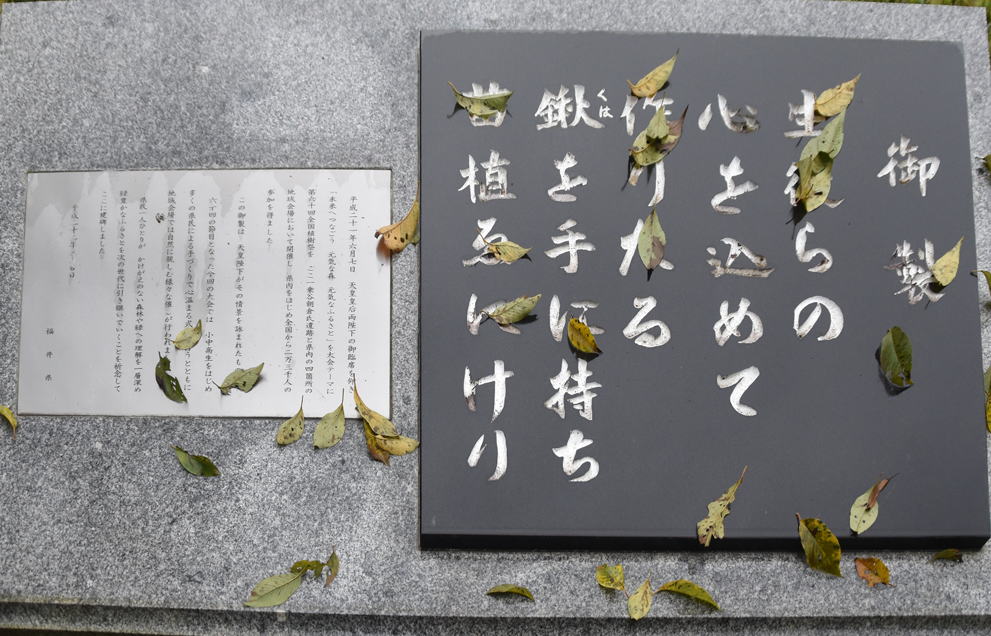 御製
生徒らの
心を込めて
作りたる
鍬を手に持ち
くは
苗植ゑにけり
平成二十一年六月七日 天皇皇后両陛下の御臨席を仰ぎ
「未来へつなごう 元気な森 元気なふるさと」を大会テーマに
第六十回全国植樹祭を ここ一乗谷朝倉氏遺跡と県内の四箇所の
地域会場において開催し 県内をはじめ全国から二万三千人の
参加を得ました
この御製は 天皇陛下がその情景を詠まれたも
六十回の節目となった今回の大会では 小中高生をはじめ
多くの県民による手づくりで心温まる式 うとともに
地域会場では自然に親しむ様々な催しが行われま
県民一人ひとりが かけがえのない森林や緑への理解を一層深め
緑豊かなふるさとを次の世代に引き継いでいくことを祈念して
ここに建碑しました
平成二十二年 月 日
福井県